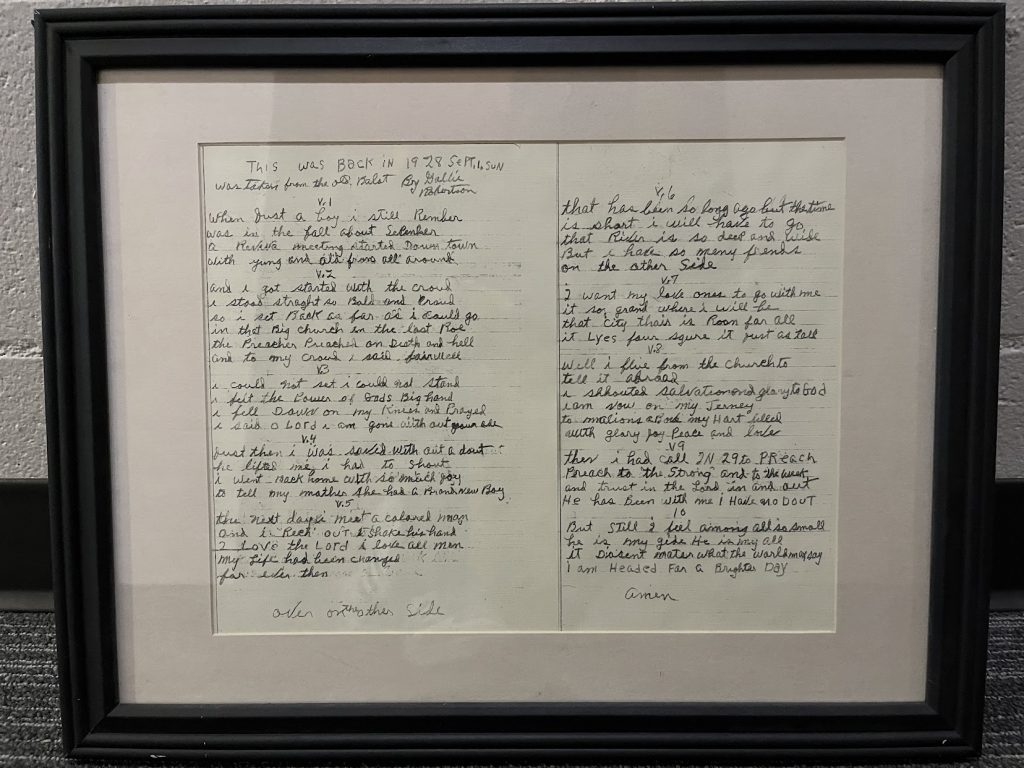 This was Back in 1928 Sept, 1, Sun
was taken from the old, Balat By Gallie
Robertson
V,1
When Just a boy i still Rember
was in the fall about Setember
a Reviva meeting started Down town
with yung and old from all around
V,2
and i got started with the croud
i stood straght so Bald and Proud
so i set Back as far as i could go
in that Big church in the last Roe
the Preacher Preached on Death and hell
and to my croud i said fairwell
V3
i could not set i could not stand
i felt the Power of Gods Big hand
i fell Down on my Knees and Prayed
i said O Lord i am gone with out your
V,4
Just then i was saved with out a dout
he lifted me i had to shout
i went Back home with so much joy
to tell my mother she had a Brand new Boy
V,5
the next day i meet a colored man
and i Rech out to shake his hand
I Love the Lord i love all men
my Life had been changed
far ever then
over on the other side
V,6
that has been so long ago but the time
is short i will have to go
that River is so deep and wide
But i have so meny fiends
on the other Side
V,7
I want my love ones to go with me
it so grand where i will be
that City thair is Room for all
it Lyes four squre it just as tall
V,8
Will i flue from the Church to
tell it abroad
i shhouted salvation and glory to God
i am now on my Jerney
to my Hart filled
with glory joy Peace and love
V9
then i had call IN 29 to PReach
Preach to the Strong and to the weak
and trust in the Lord in and out
He has Been with me i Have no Dout
10
But still I feel among all so small
he is my gide He is my all
it Dosent mater what the world may say
I am Headed For a Brighter Day
amen